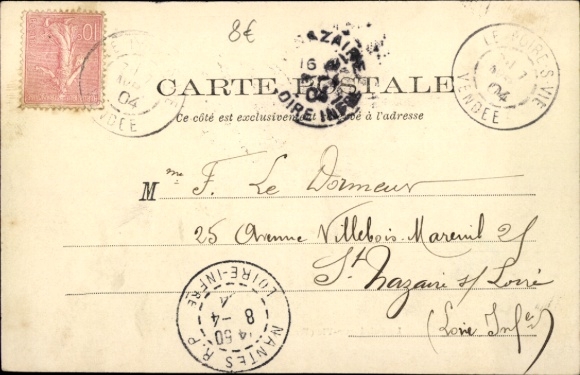 10
8€
VENDÉE
04
NAZAIRE
16
04
LOIRE INFRE
LE
S VIE
04
VENDÉE
CARTE POSTALE
Ce côté est exclusivement à l'adresse
Mme F. Le Dormeur
25 Avenue Villebois-Mareuil 25
St Nazaire s/ Loire
(Loire Infre)
NANTES R.P.
14 50
8 - 4
LOIRE-INFRE